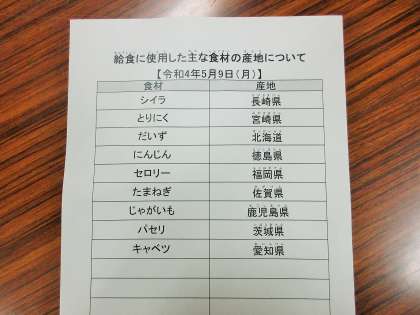 給食に使用した主な食材の産地について
【令和4年5月9日(月)】
食材 産地
シイラ 長崎県
とりにく 宮崎県
だいず 北海道
にんじん 徳島県
セロリー 福岡県
たまねぎ 佐賀県
じゃがいも 鹿児島県
パセリ 茨城県
キャベツ 愛知県